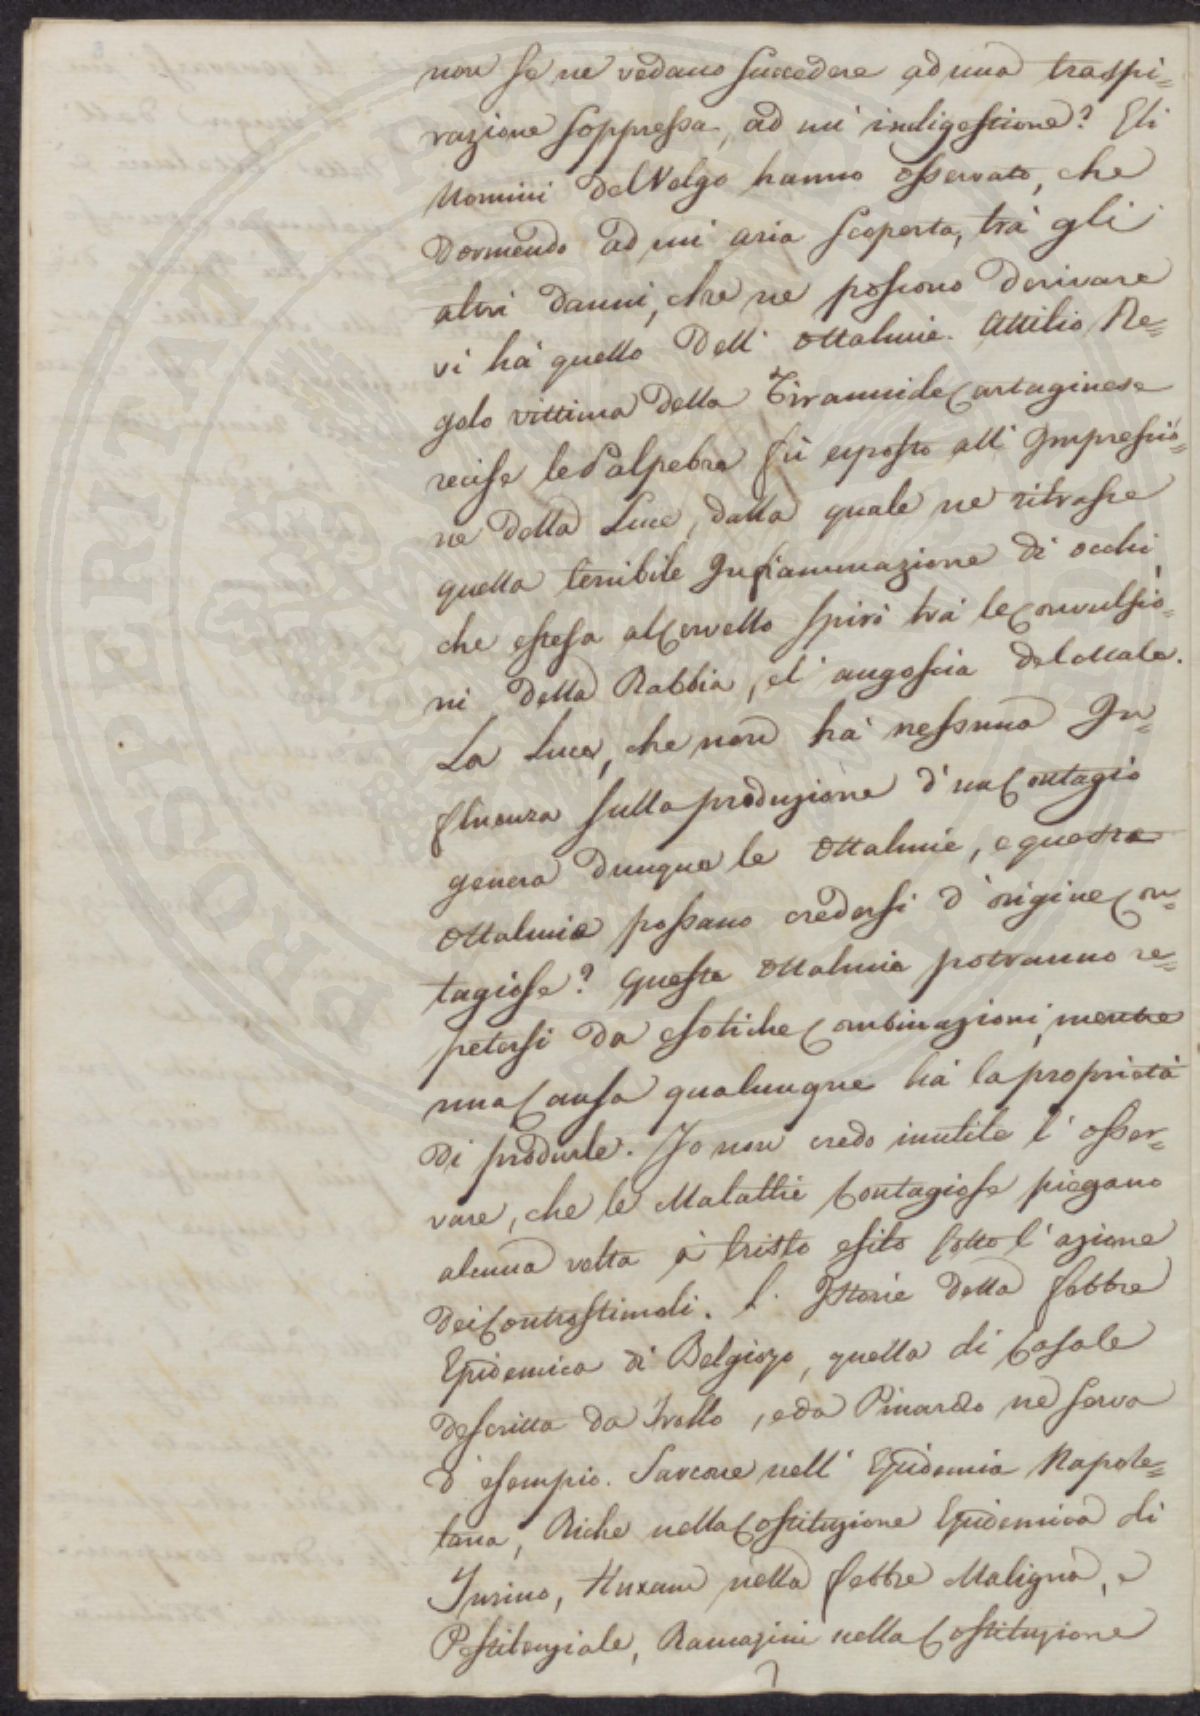 non se ne vedano succedere ad una traspi=
razione soppressa, ad un' indigestione? Gli
Uomini del Volgo hanno osservato, che
dormendo ad un' aria scoperta, trà gli
altri danni, che ne possono derivare
vi hà quello dell' Ottalmie. Attilio Re=
golo vittima della Tirannide Cartaginese
recise le Palpebra fù esposto all' Impressio=
ne della Luce, dalla quale ne ritrasse
quella terribile Infiammazione di occhi,
che estesa al Cervello spirò trà le Convulsio=
ni della Rabbia, el' angoscia del Male.
La Luce, che non hà nessuna In=
fluenza sulla produzione d' un Contagio
genera dunque le Ottalmie, e queste
Ottalmie possano credersi d' origine Con=
tagiose? Queste Ottalmie potranno re=
petersi da esotiche Combinazioni, mentre
una Causa qualunque hà la proprietà
di produrle. Io non credo inutile l' osser=
vare, che le Malattie Contagiose piegano
alcuna volta à tristo esito sotto l' azione
dei Controstimoli. L' Istorie della febbre
Epidemica di Belgiojo, quella di Casale
descritta da Trallo, e da Pinardo ne serva
d' esempio. Sarcone nell' Epidemia Napole=
tana, Riche nella Costituzione Epidemica di
Turino, Huxam nella febbre Maligna, e
Pestilenziale, Ramazini nella Costituzione
PROSPERITATI PUBLICAE